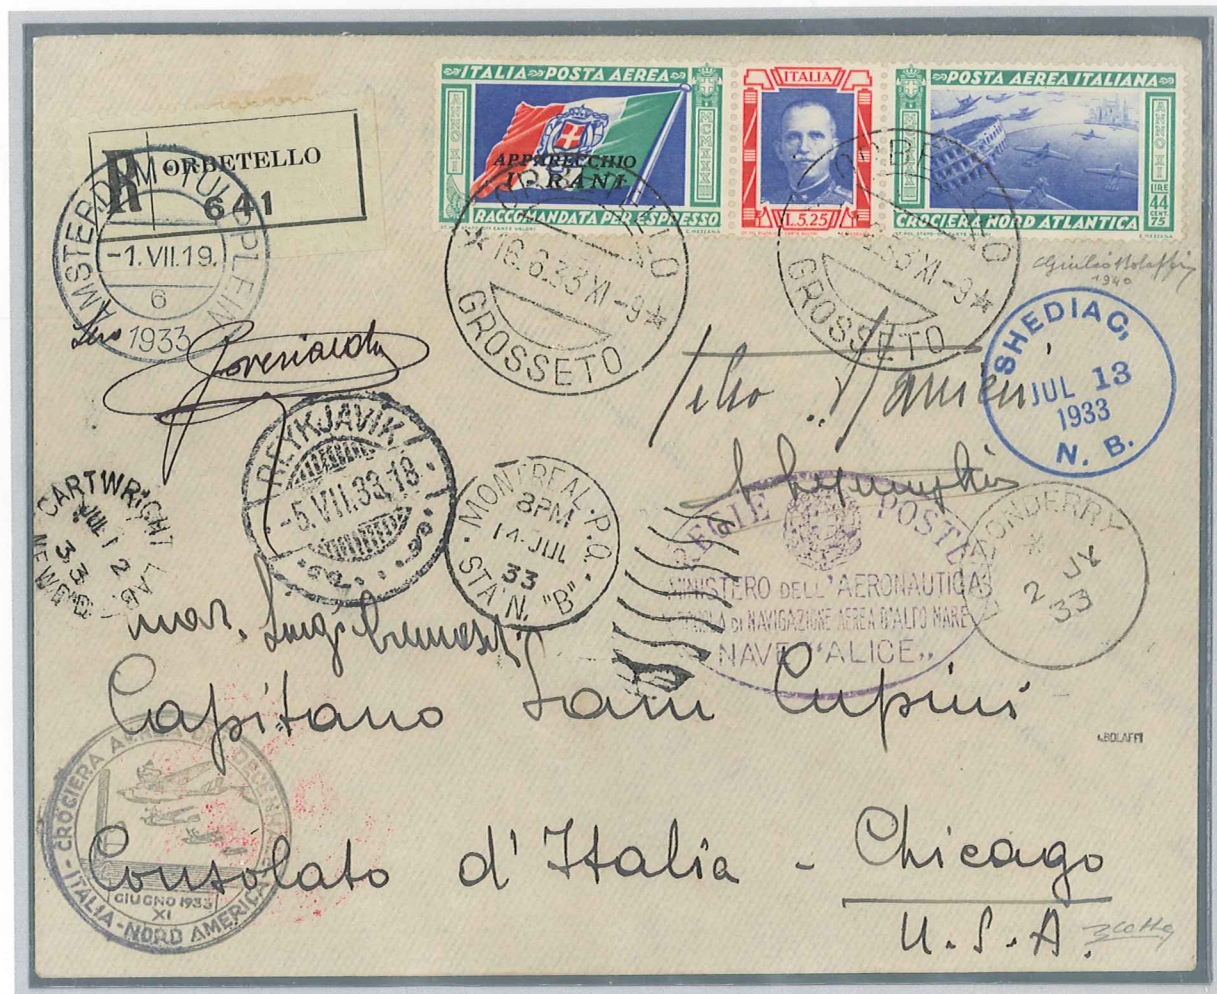 ITALIA POSTA AEREA
ANNO XI
MCMXXXIII
APPARECCHIO
I-RANI
RACCOMANDATA PER ESPRESSO
ITALIA
L.5.25
POSTA AEREA ITALIANA
ANNO XI
LIRE
44
CENT.
75
CROCIERA NORD ATLANTICA
R ORBETELLO
641
AMSTERDAM TULPPLEIN
-1.VII.19.
6
1933
ORBETELLO
16.6.33 XI -9
GROSSETO
ORBETELLO
.33 XI -9
GROSSETO
Giulio Bolaffi
1940
SHEDIAC,
JUL 13
1933
N. B.
REYKJAVIK
-5.VII.33.18
CARTWRIGHT LAB
JUL 12
33
NEWF'D
MONTREAL P.Q.
8PM
14 JUL
33
STA'N. "B"
REGIE POSTE
MINISTERO DELL'AERONAUTICA
SCUOLA DI NAVIGAZIONE AEREA D'ALTO MARE
NAVE "ALICE"
LONDONDERRY
2 JY
33
mar. Luigi
Capitano
Consolato d'Italia - Chicago
U.S.A.
A.BOLAFFI
CROCIERA AEREA DEL DECENNALE
GIUGNO 1933
XI
ITALIA-NORD AMERICA